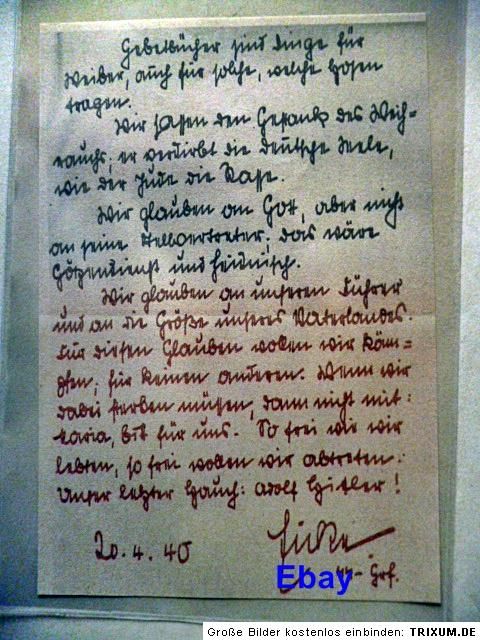 Gebetbücher sind Dinge für
Weiber, auch für solche, welche Hosen
tragen.
Wir hassen den Gestank des Weih-
rauchs; er verdirbt die deutsche Seele,
wie der Jude die Rasse.
Wir glauben an Gott, aber nicht
an seine Stellvertreter; das wäre
Götzendienst und heidnisch.
Wir glauben an unseren Führer
und an die Größe unseres Vaterlandes.
Für diesen Glauben wollen wir käm-
pfen; für keinen anderen. Wenn wir
dabei sterben müssen, dann nicht mit:
Maria, bitt für uns. So frei wie wir
lebten, so frei wollen wir abtreten.
Unser letzter Hauch: Adolf Hitler!
20.4.40
Eicke
SS-Grf.
Ebay
Große Bilder kostenlos einbinden: TRIXUM.DE